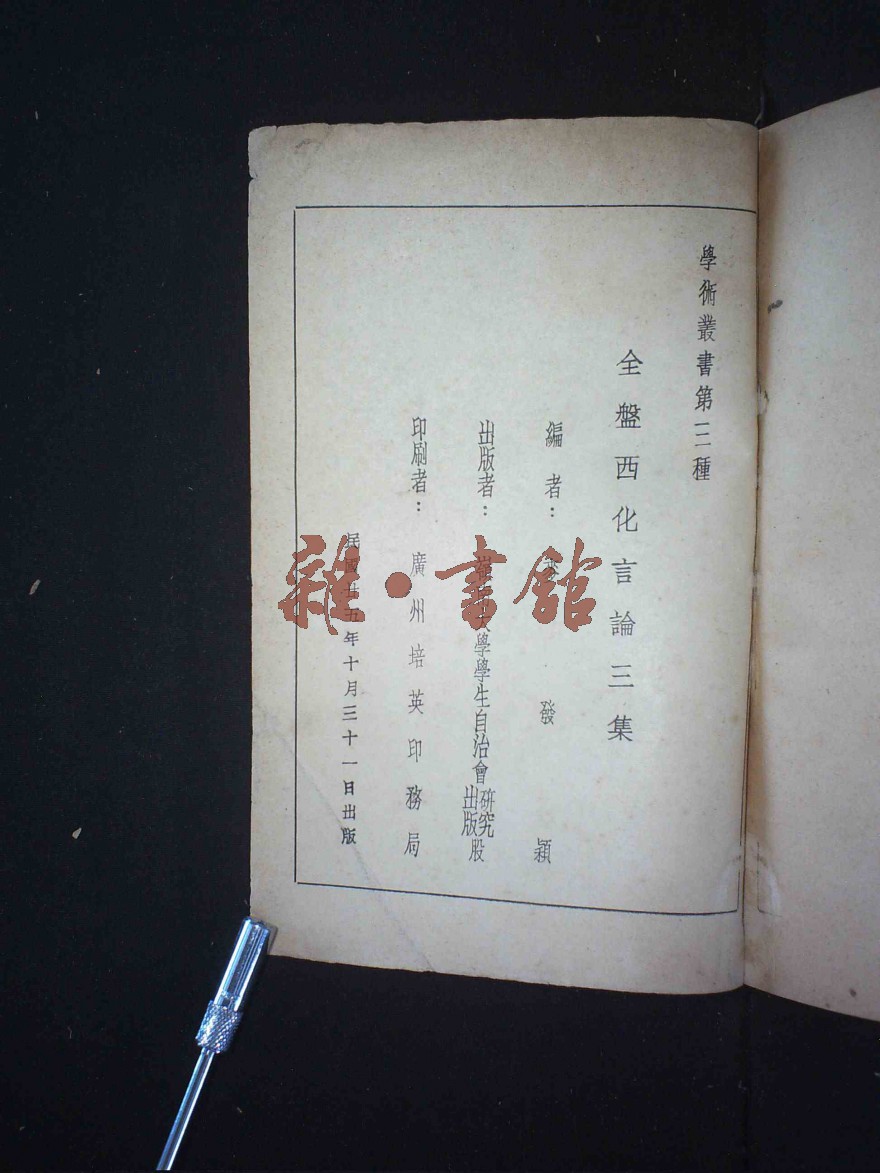 學術叢書第三種
全盤西化言論三集
編者：麥發穎
出版者：嶺南大學學生自治會研究出版股
印刷者：廣州培英印務局
民國廿五年十月三十一日出版
雜·書館